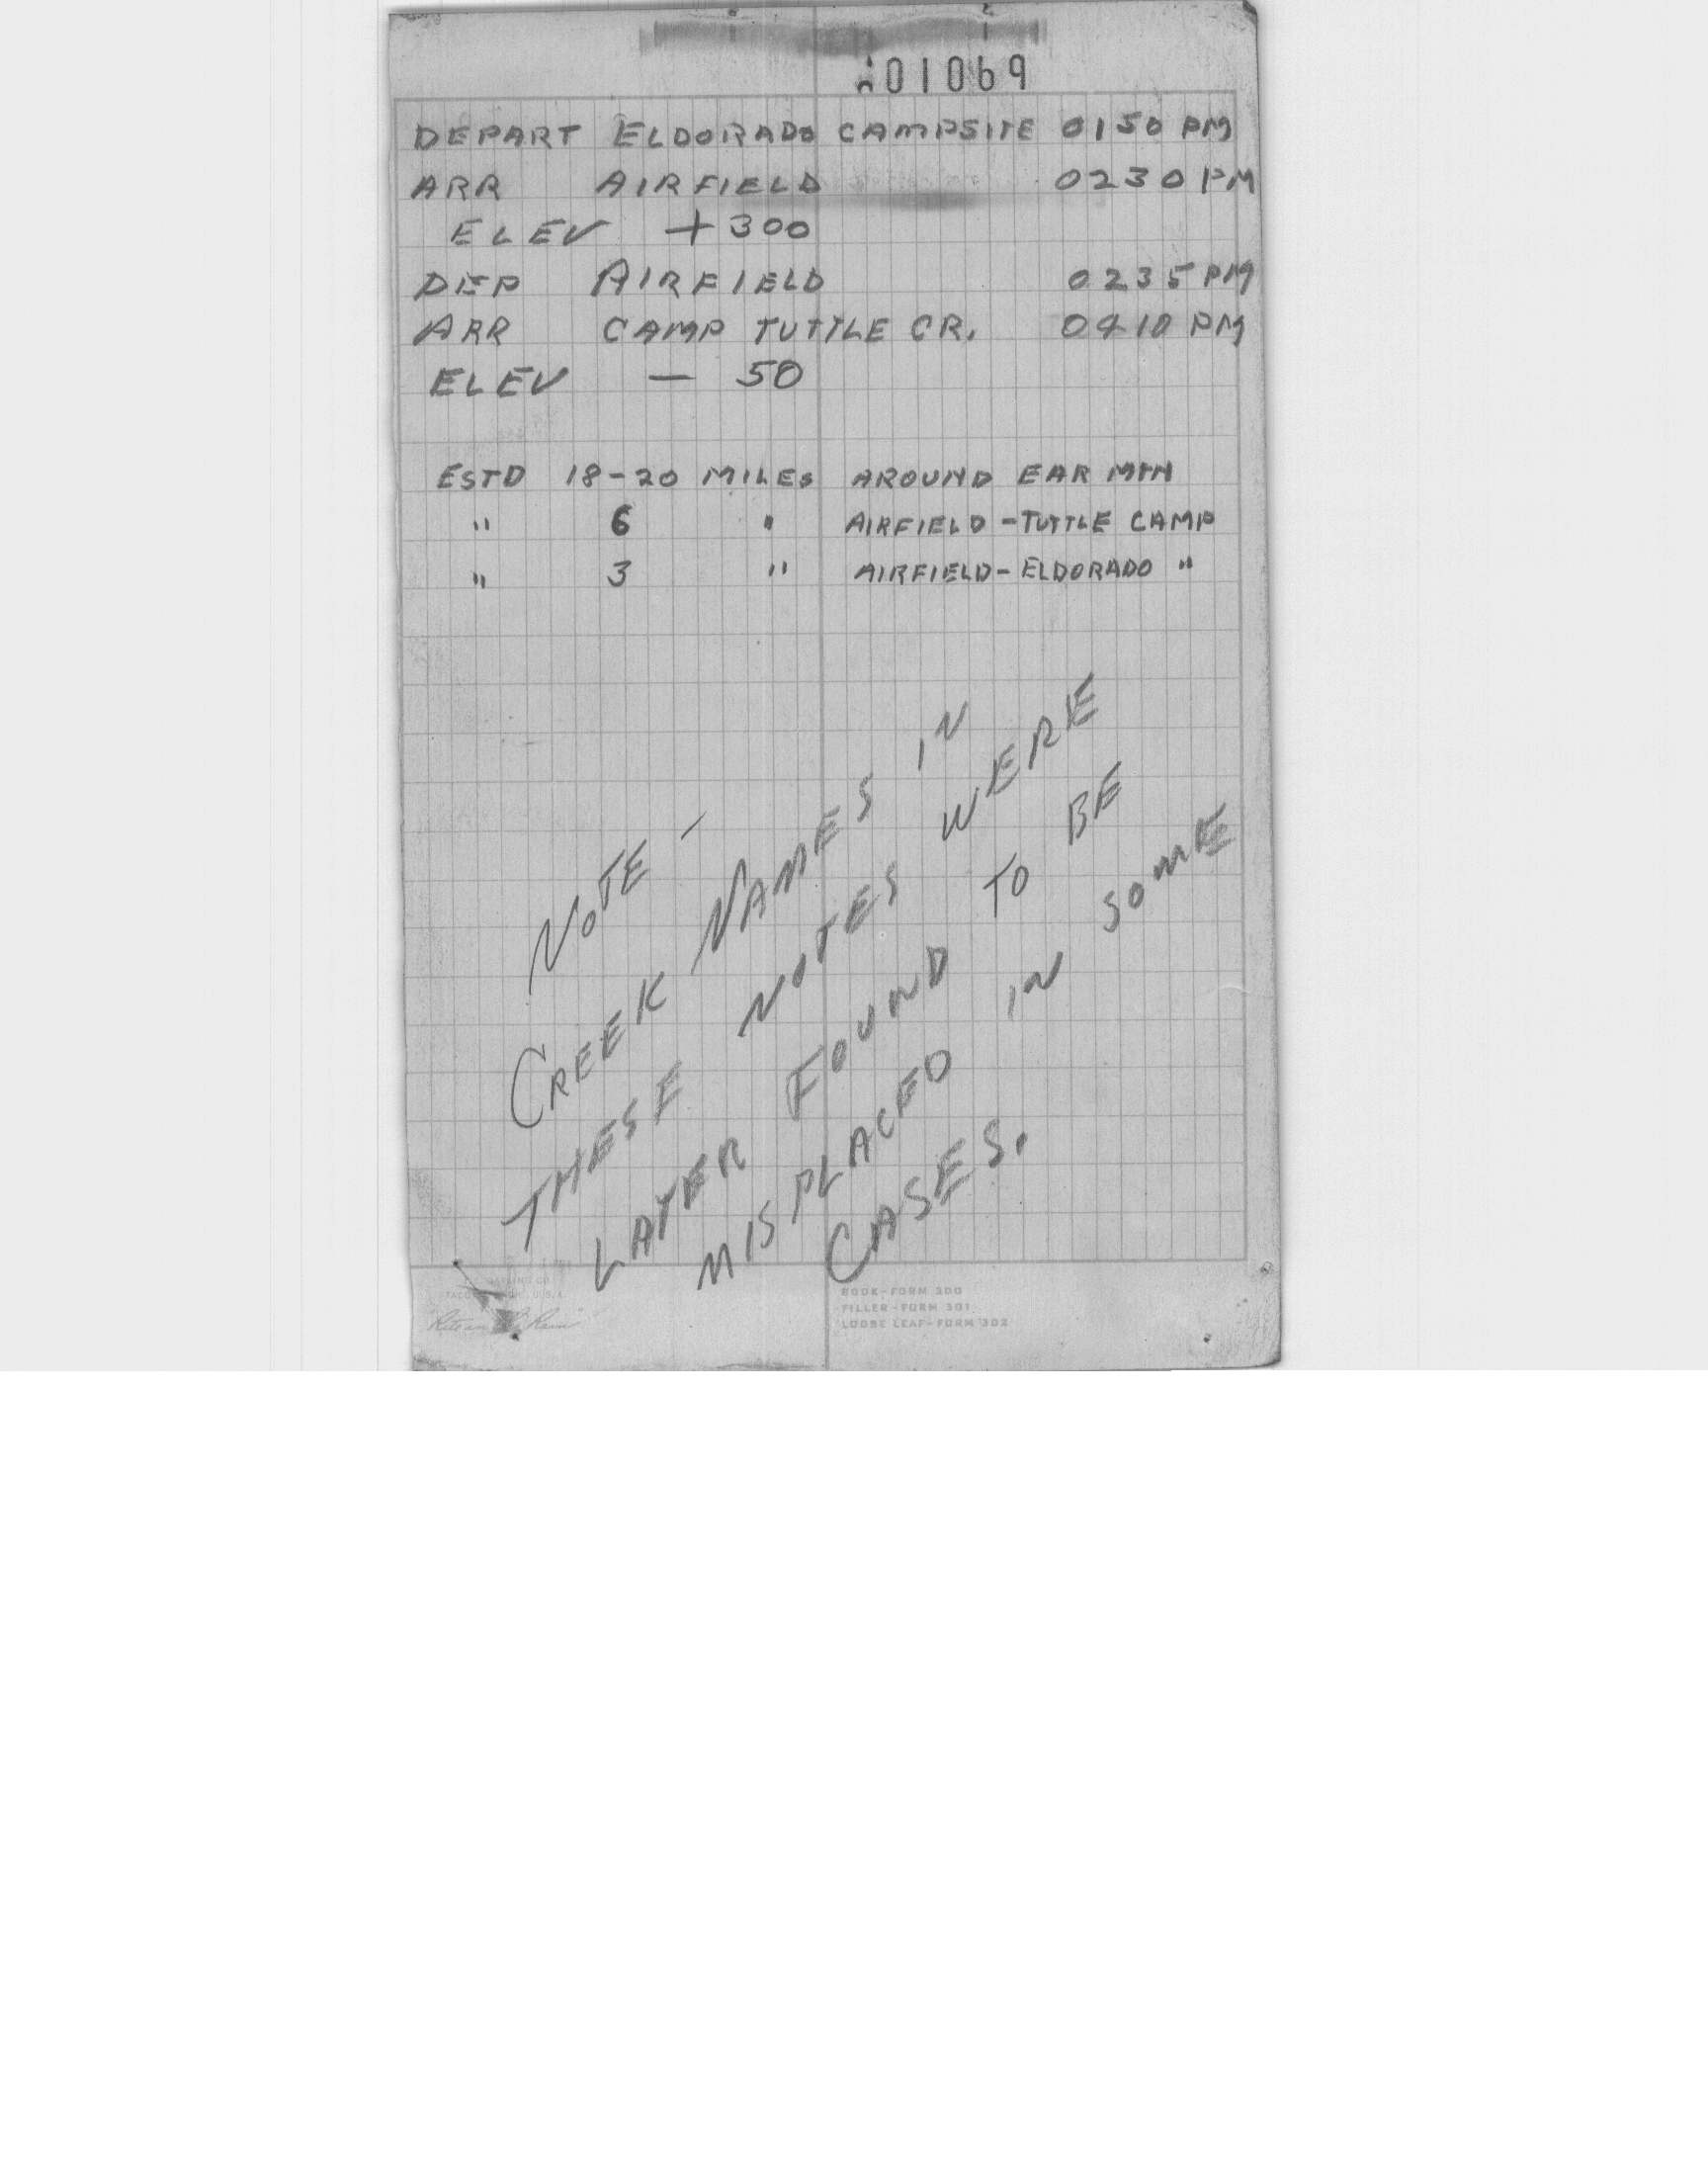 01069
DEPART ELDORADO CAMPSITE 0150 PM
ARR AIRFIELD 0230 PM
ELEV +300
DEP AIRFIELD 0235 PM
ARR CAMP TUTTLE CR. 0410 PM
ELEV — 50
ESTD 18-20 MILES AROUND EAR MTN
" 6 " AIRFIELD - TUTTLE CAMP
" 3 " AIRFIELD - ELDORADO "
NOTE -
CREEK NAMES IN
THESE NOTES WERE
LATER FOUND TO BE
MISPLACED IN SOME
CASES.
BOOK-FORM 300
FILLER-FORM 301
LOOSE LEAF-FORM 302